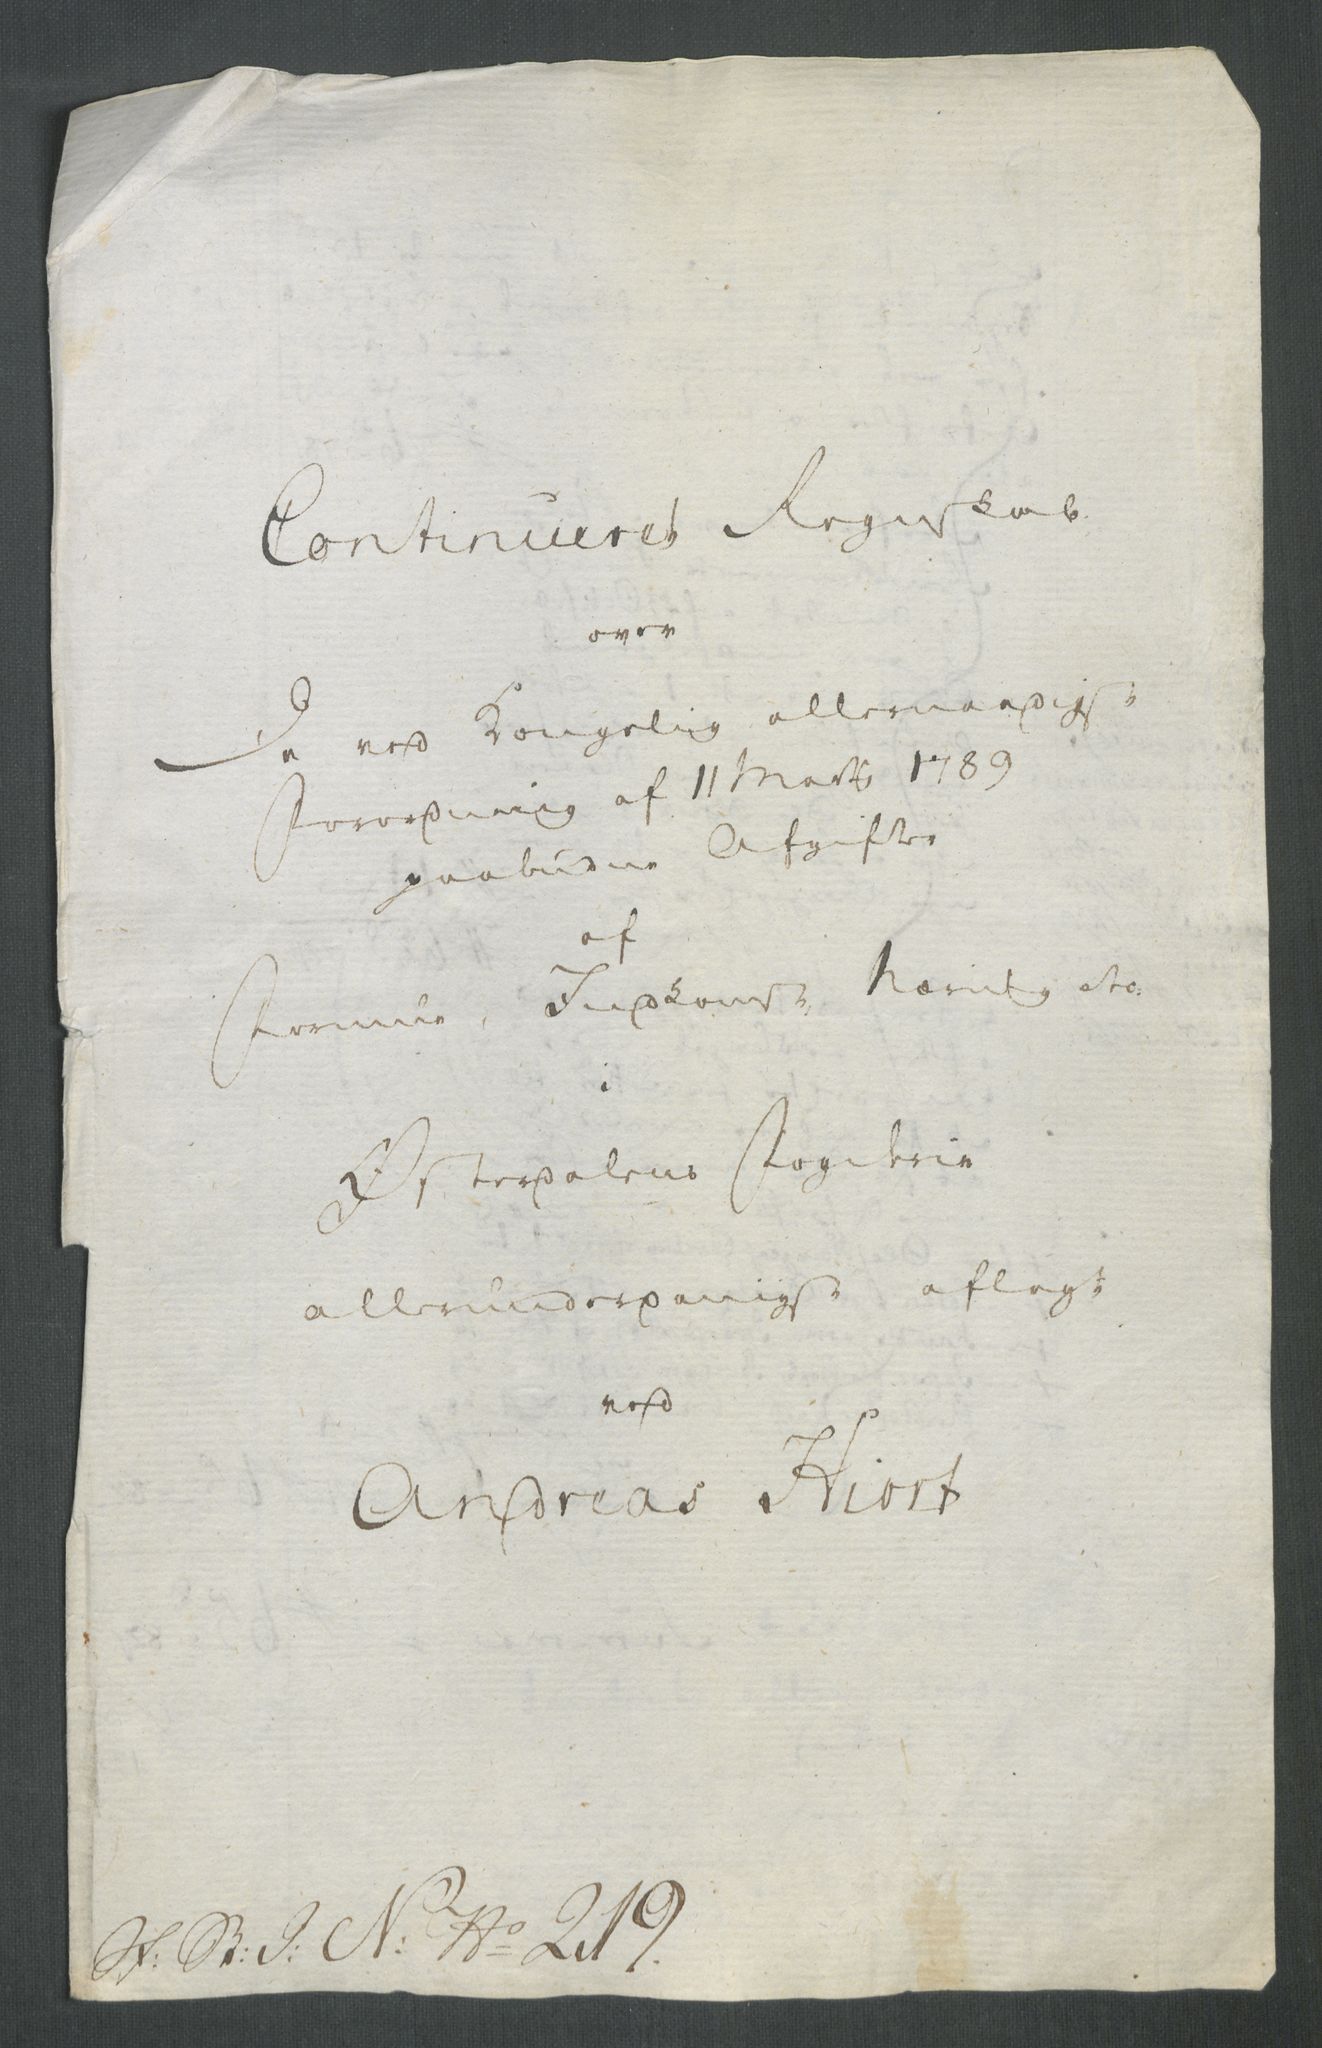 Continueret Regnskab
over
De ved Kongelig allernaadigst
Forordning af 11 Marts 1789
paabudne Afgifter
af
Formue, Indkomst, Næring etc.
i
Østerdalens Fogderie
allerunderdanigst aflagt
ved
Andreas Hiort
N: No 219.